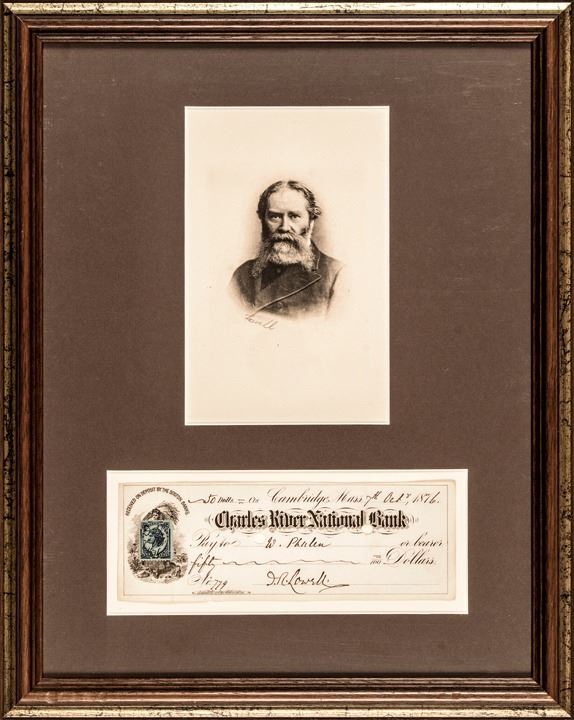 Lowell
RECEIVED ON DEPOSIT BY THE BOSTON BANKS
50 Dolls Cambridge, Mass 7th Oct. 1876.
Charles River National Bank
Pay to W. Phalen or bearer
fifty /100 Dollars.
No. 779 J. R. Lowell.